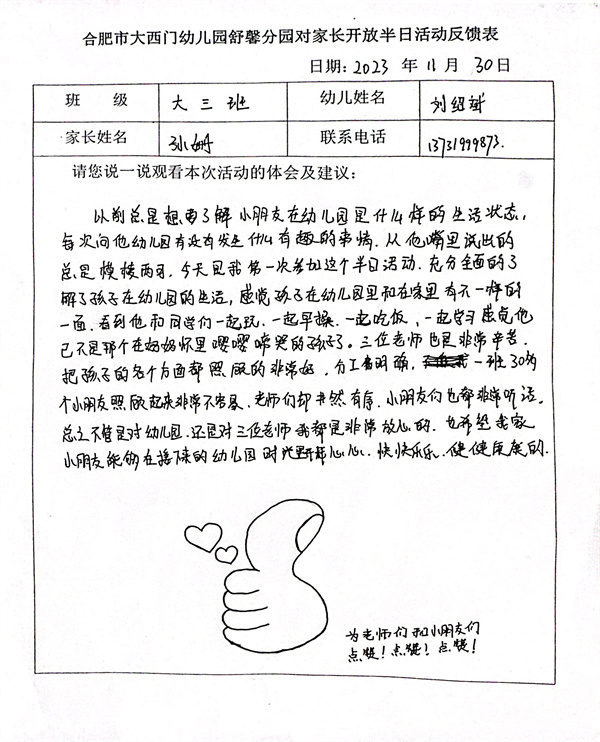 合肥市大西门幼儿园舒馨分园对家长开放半日活动反馈表
日期：2023 年 11 月 30 日
班 级 大三班 幼儿姓名 刘绍斌
家长姓名 孙姗 联系电话 13731999873.
请您说一说观看本次活动的体会及建议：
以前总是想要了解小朋友在幼儿园是什么样的生活状态，
每次问他幼儿园有没有发生什么有趣的事情，从他嘴里说出的
总是模棱两可，今天是我第一次参加这个半日活动，充分全面的了
解了孩子在幼儿园的生活，感觉孩子在幼儿园里和在家里有不一样的
一面，看到他和同学们一起玩，一起早操，一起吃饭，一起学习感觉他
已不是那个在妈妈怀里嘤嘤啼哭的孩子了。三位老师也是非常辛苦，
把孩子的各个方面都照顾的非常好，分工着明确，一班30多
个小朋友照顾起来非常不容易，老师们却井然有序，小朋友们也都非常听话。
总之不管是对幼儿园，还是对三位老师我都是非常放心的，也希望我家
小朋友能够在接下来的幼儿园时光里开开心心，快快乐乐，健健康康的.
为老师们和小朋友们
点赞！点赞！点赞！